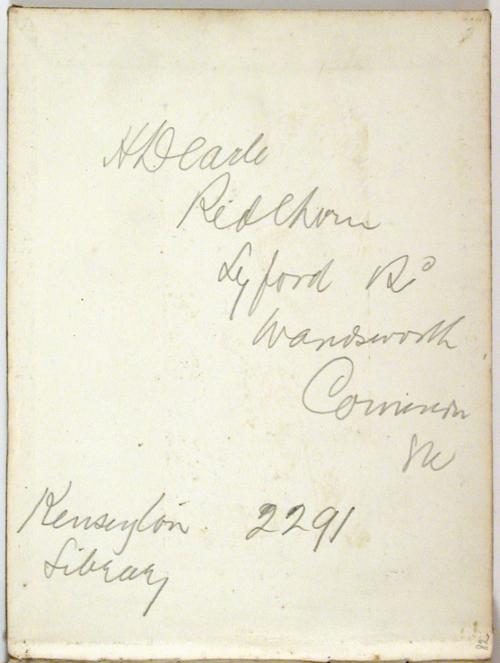 Redthorn
Lyford Rd
Wandsworth
Common
SW
Kensington 2291
Library
82